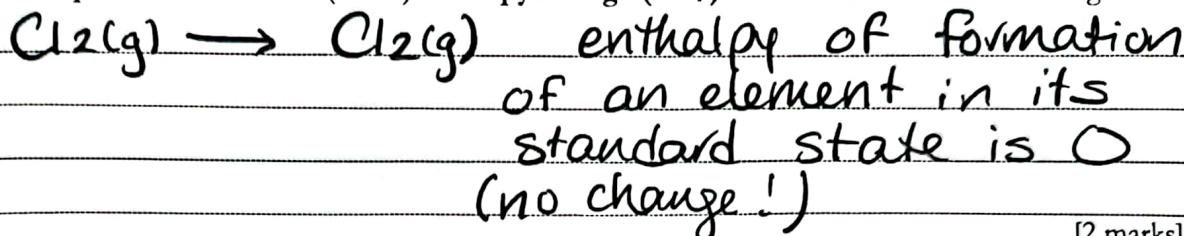 Cl2(g) → Cl2(g) enthalpy of formation
of an element in its
standard state is 0
(no change!)
[2 marks]